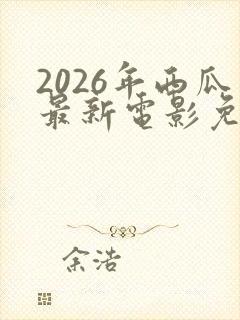 2026年西瓜
最新电影免
余浩